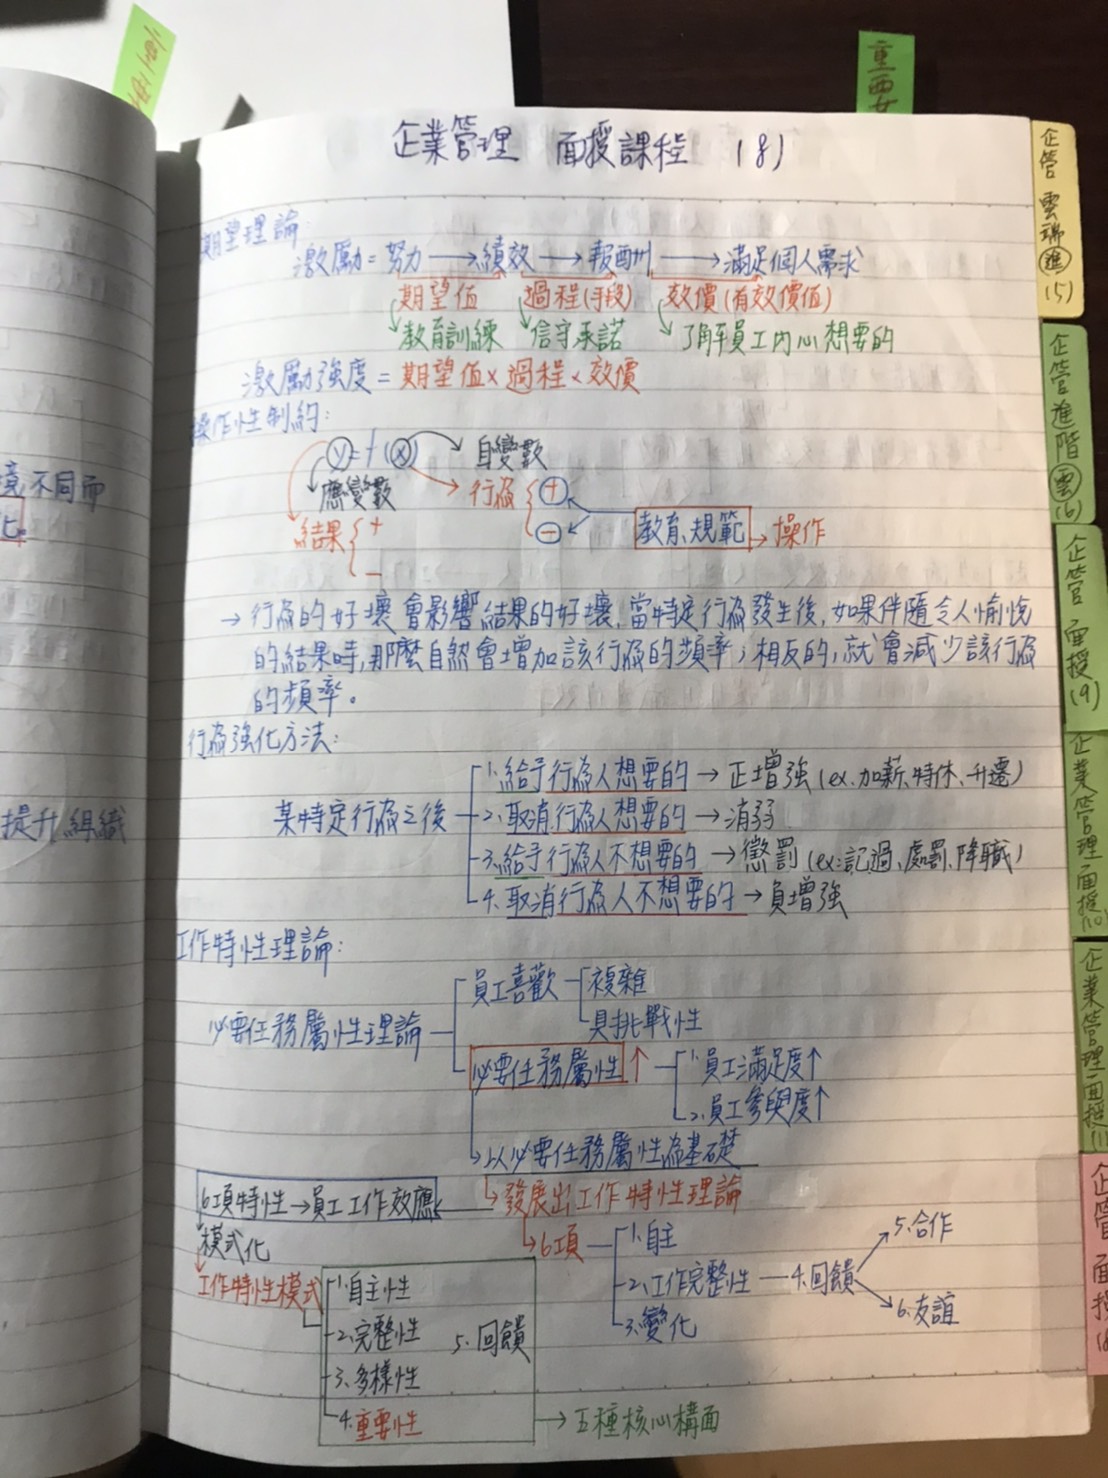 重要
企業管理 面授課程 (8)
期望理論:
激勵=努力→績效→報酬→滿足個人需求
期望值 過程(手段) 效價(有效價值)
教育訓練 信守承諾 了解員工內心想要的
激勵強度=期望值×過程×效價
操作性制約:
y=f(x) 自變數
應變數 行為 + −
結果 + − 教育、規範→操作
→行為的好壞會影響結果的好壞,當特定行為發生後,如果伴隨令人愉悅
的結果時,那麼自然會增加該行為的頻率;相反的,就會減少該行為
的頻率。
行為強化方法:
1.給予行為人想要的→正增強(ex.加薪、特休、升遷)
某特定行為之後 2.取消行為人想要的→消弱
3.給予行為人不想要的→懲罰(ex:記過、處罰、降職)
4.取消行為人不想要的→負增強
工作特性理論:
員工喜歡 複雜
必要任務屬性理論 具挑戰性
必要任務屬性↑ 1.員工滿足度↑
2.員工參與度↑
以必要任務屬性為基礎
6項特性→員工工作效應 發展出工作特性理論
模式化 6項 1.自主 5.合作
工作特性模式 1.自主性 2.工作完整性 4.回饋
2.完整性 5.回饋 3.變化 6.友誼
3.多樣性
4.重要性 →五種核心構面
境不同而
化。
提升組織
企管 雲端 進 (5)
企管進階 雲 (6)
企管 面授 (9)
企業管理面授(10)
企業管理面授(11)
企管 面授